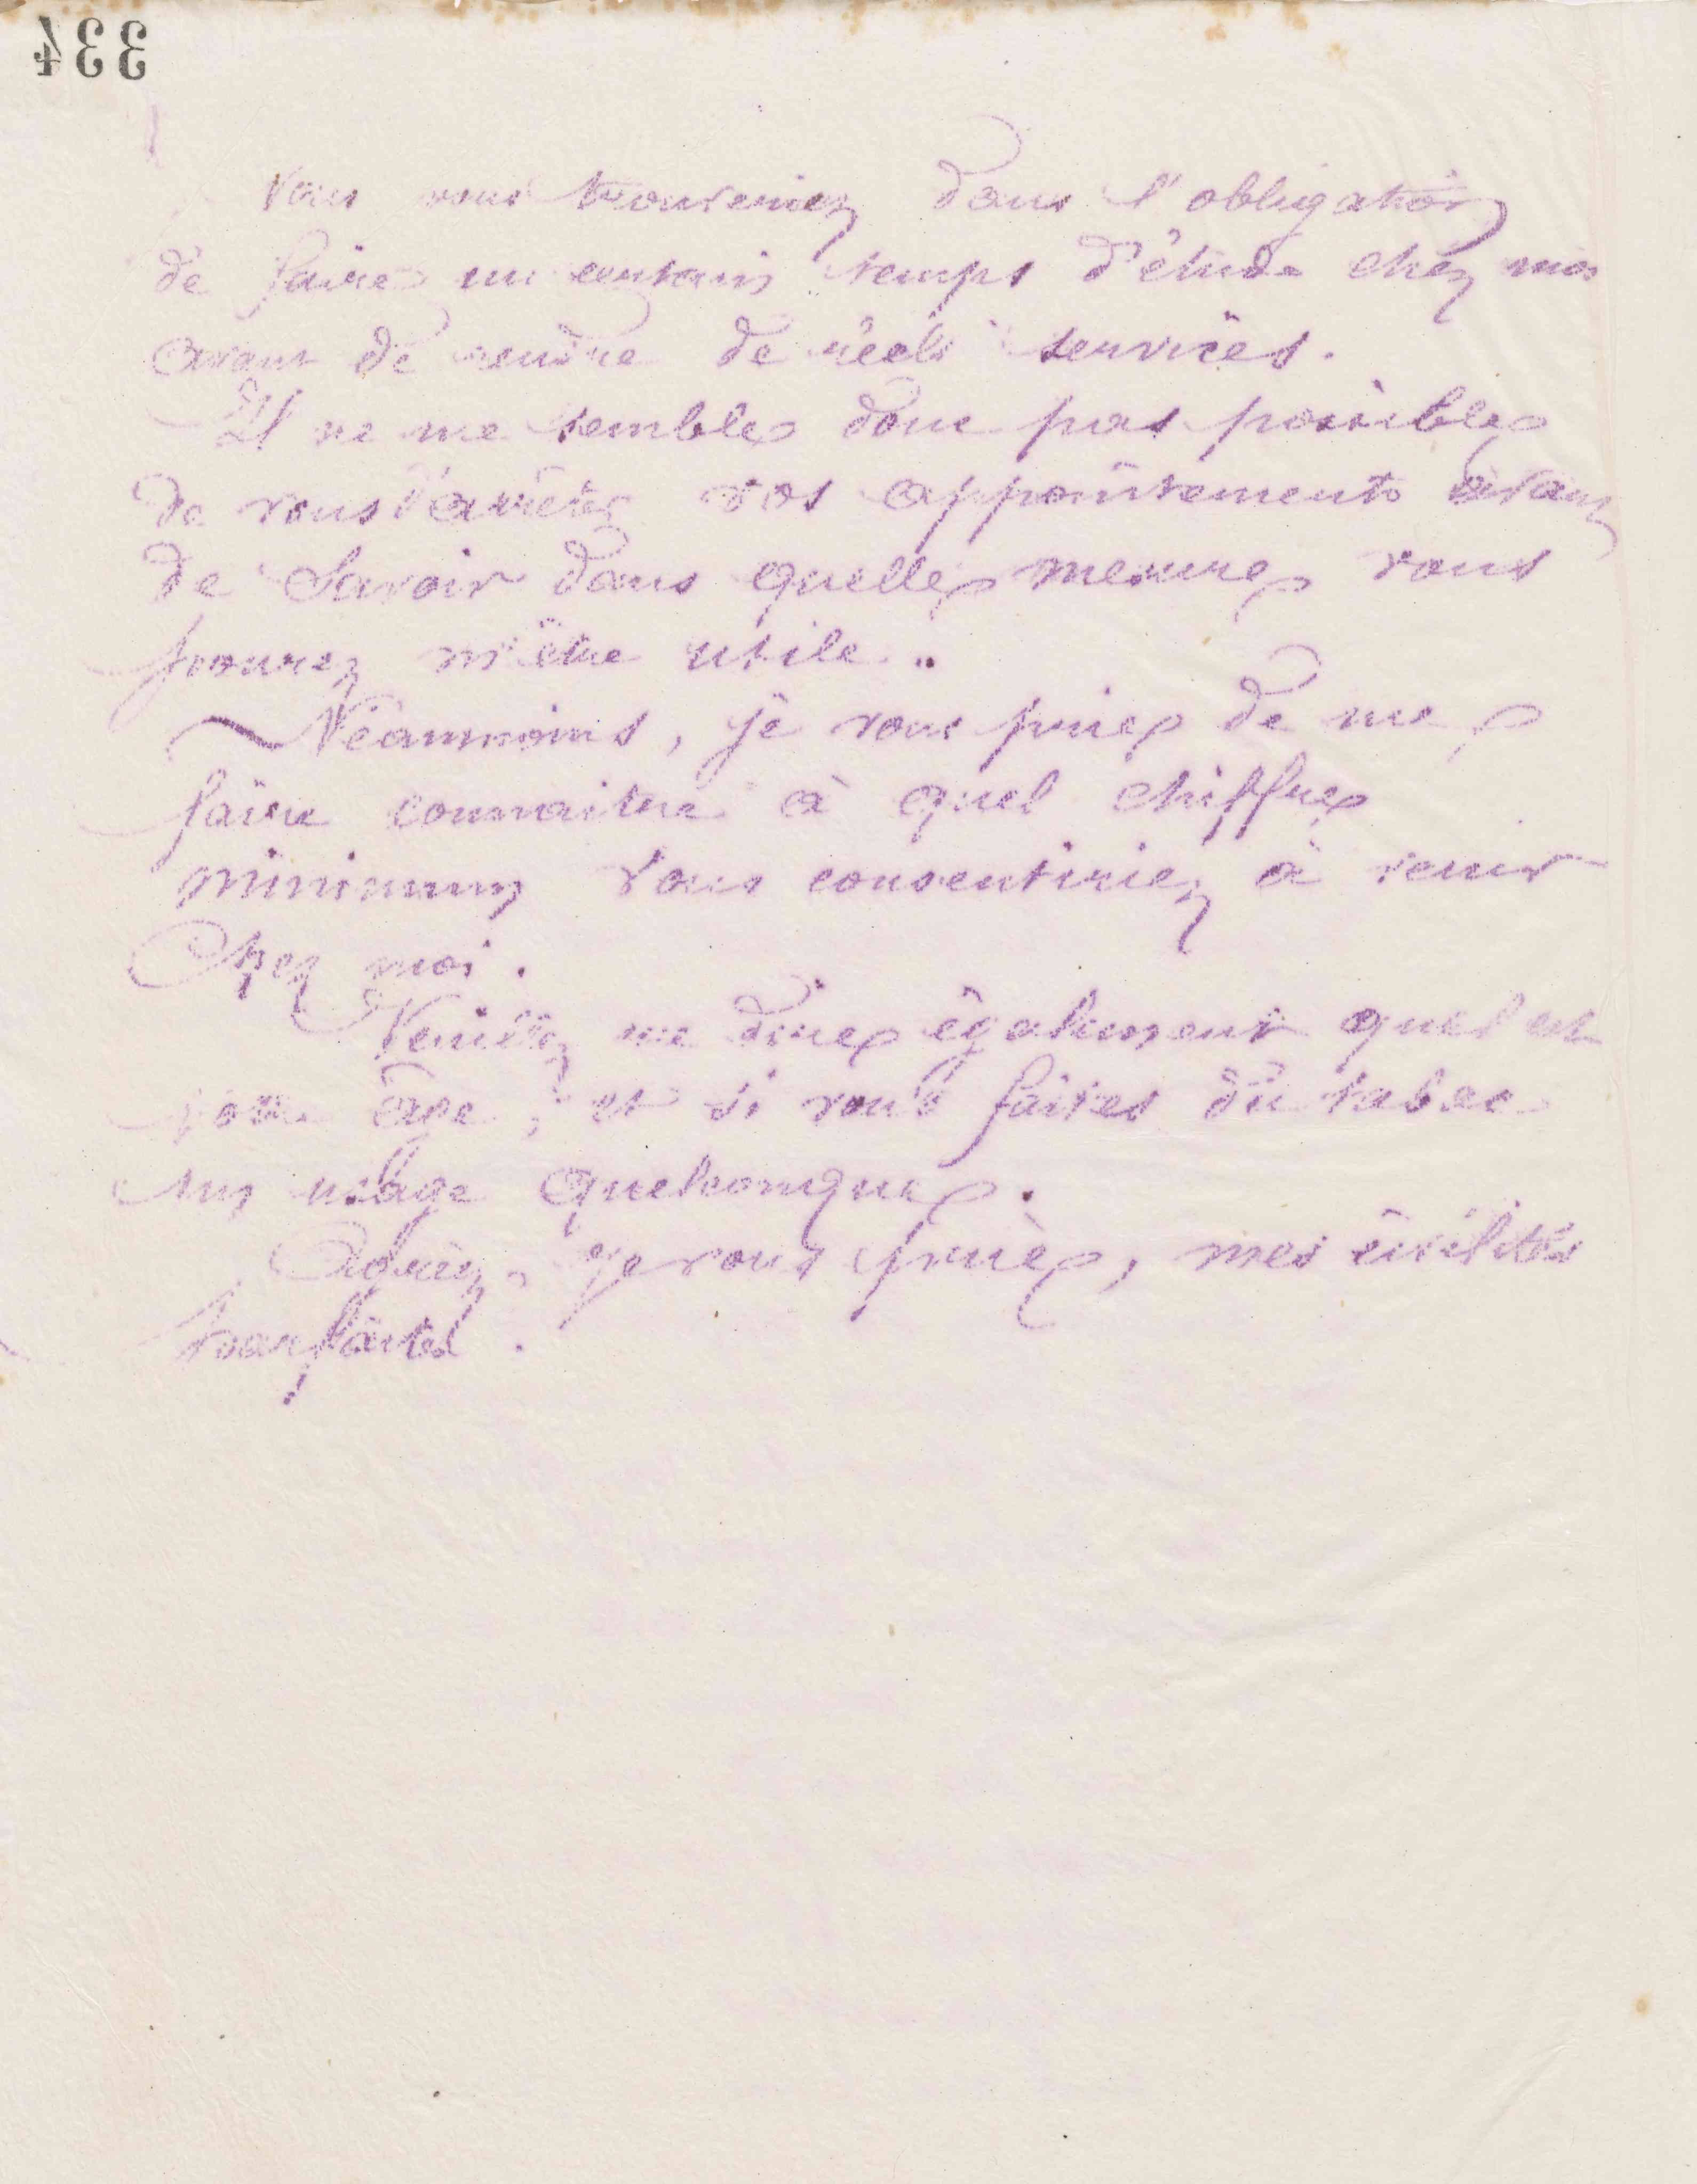 334
Vous vous trouveriez dans l'obligation
de faire un certain temps d'étude chez moi
avant de rendre de réels services.
Il ne me semble donc pas possible
de vous arrêter vos appointements avant
de Savoir dans quelle mesure vous
pourrez m'être utile.
Néanmoins, je vous prie de me
faire connaitre à quel chiffre
minimum vous consentiriez à venir
Chez moi.
Veuillez me dire également quel est
votre âge, et si vous faites du tabac
un usage quelconque.
Agréez, je vous prie, mes civilités
parfaites.